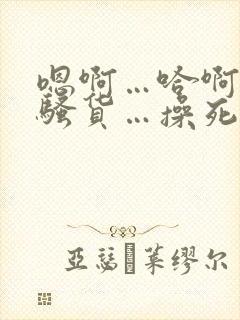 嗯啊…哈啊
骚货…操死
亚瑟·莱缪尔